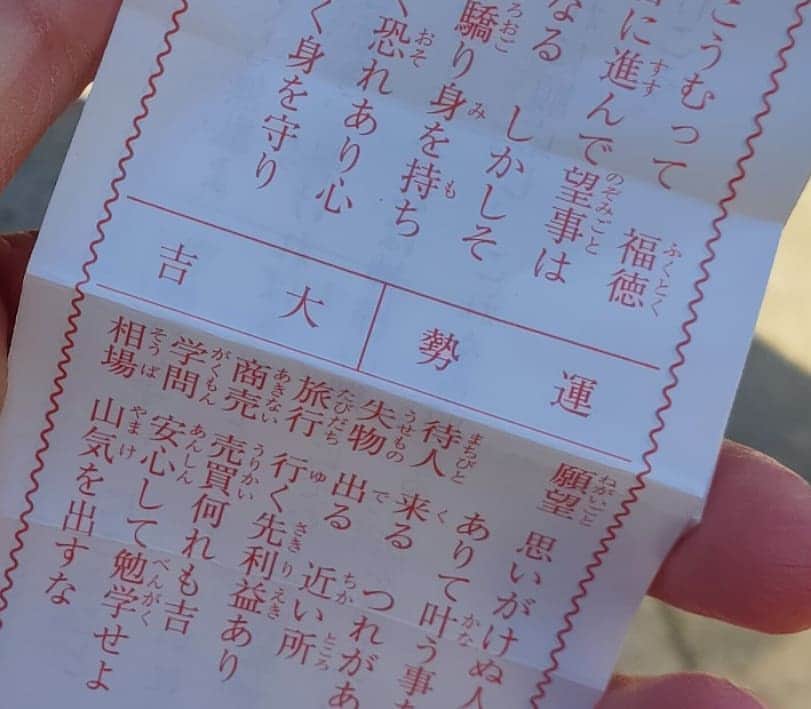 こうむって 福徳
に進んで望事は
なる しかしそ
驕り身を持ち
く恐れあり心
く身を守り
運勢 大吉
願望 思いがけぬ人
ありて叶う事
待人 来る つれがあ
失物 出る 近い所
旅行 行く先利益あり
商売 売買何れも吉
学問 安心して勉学せよ
相場 山気を出すな